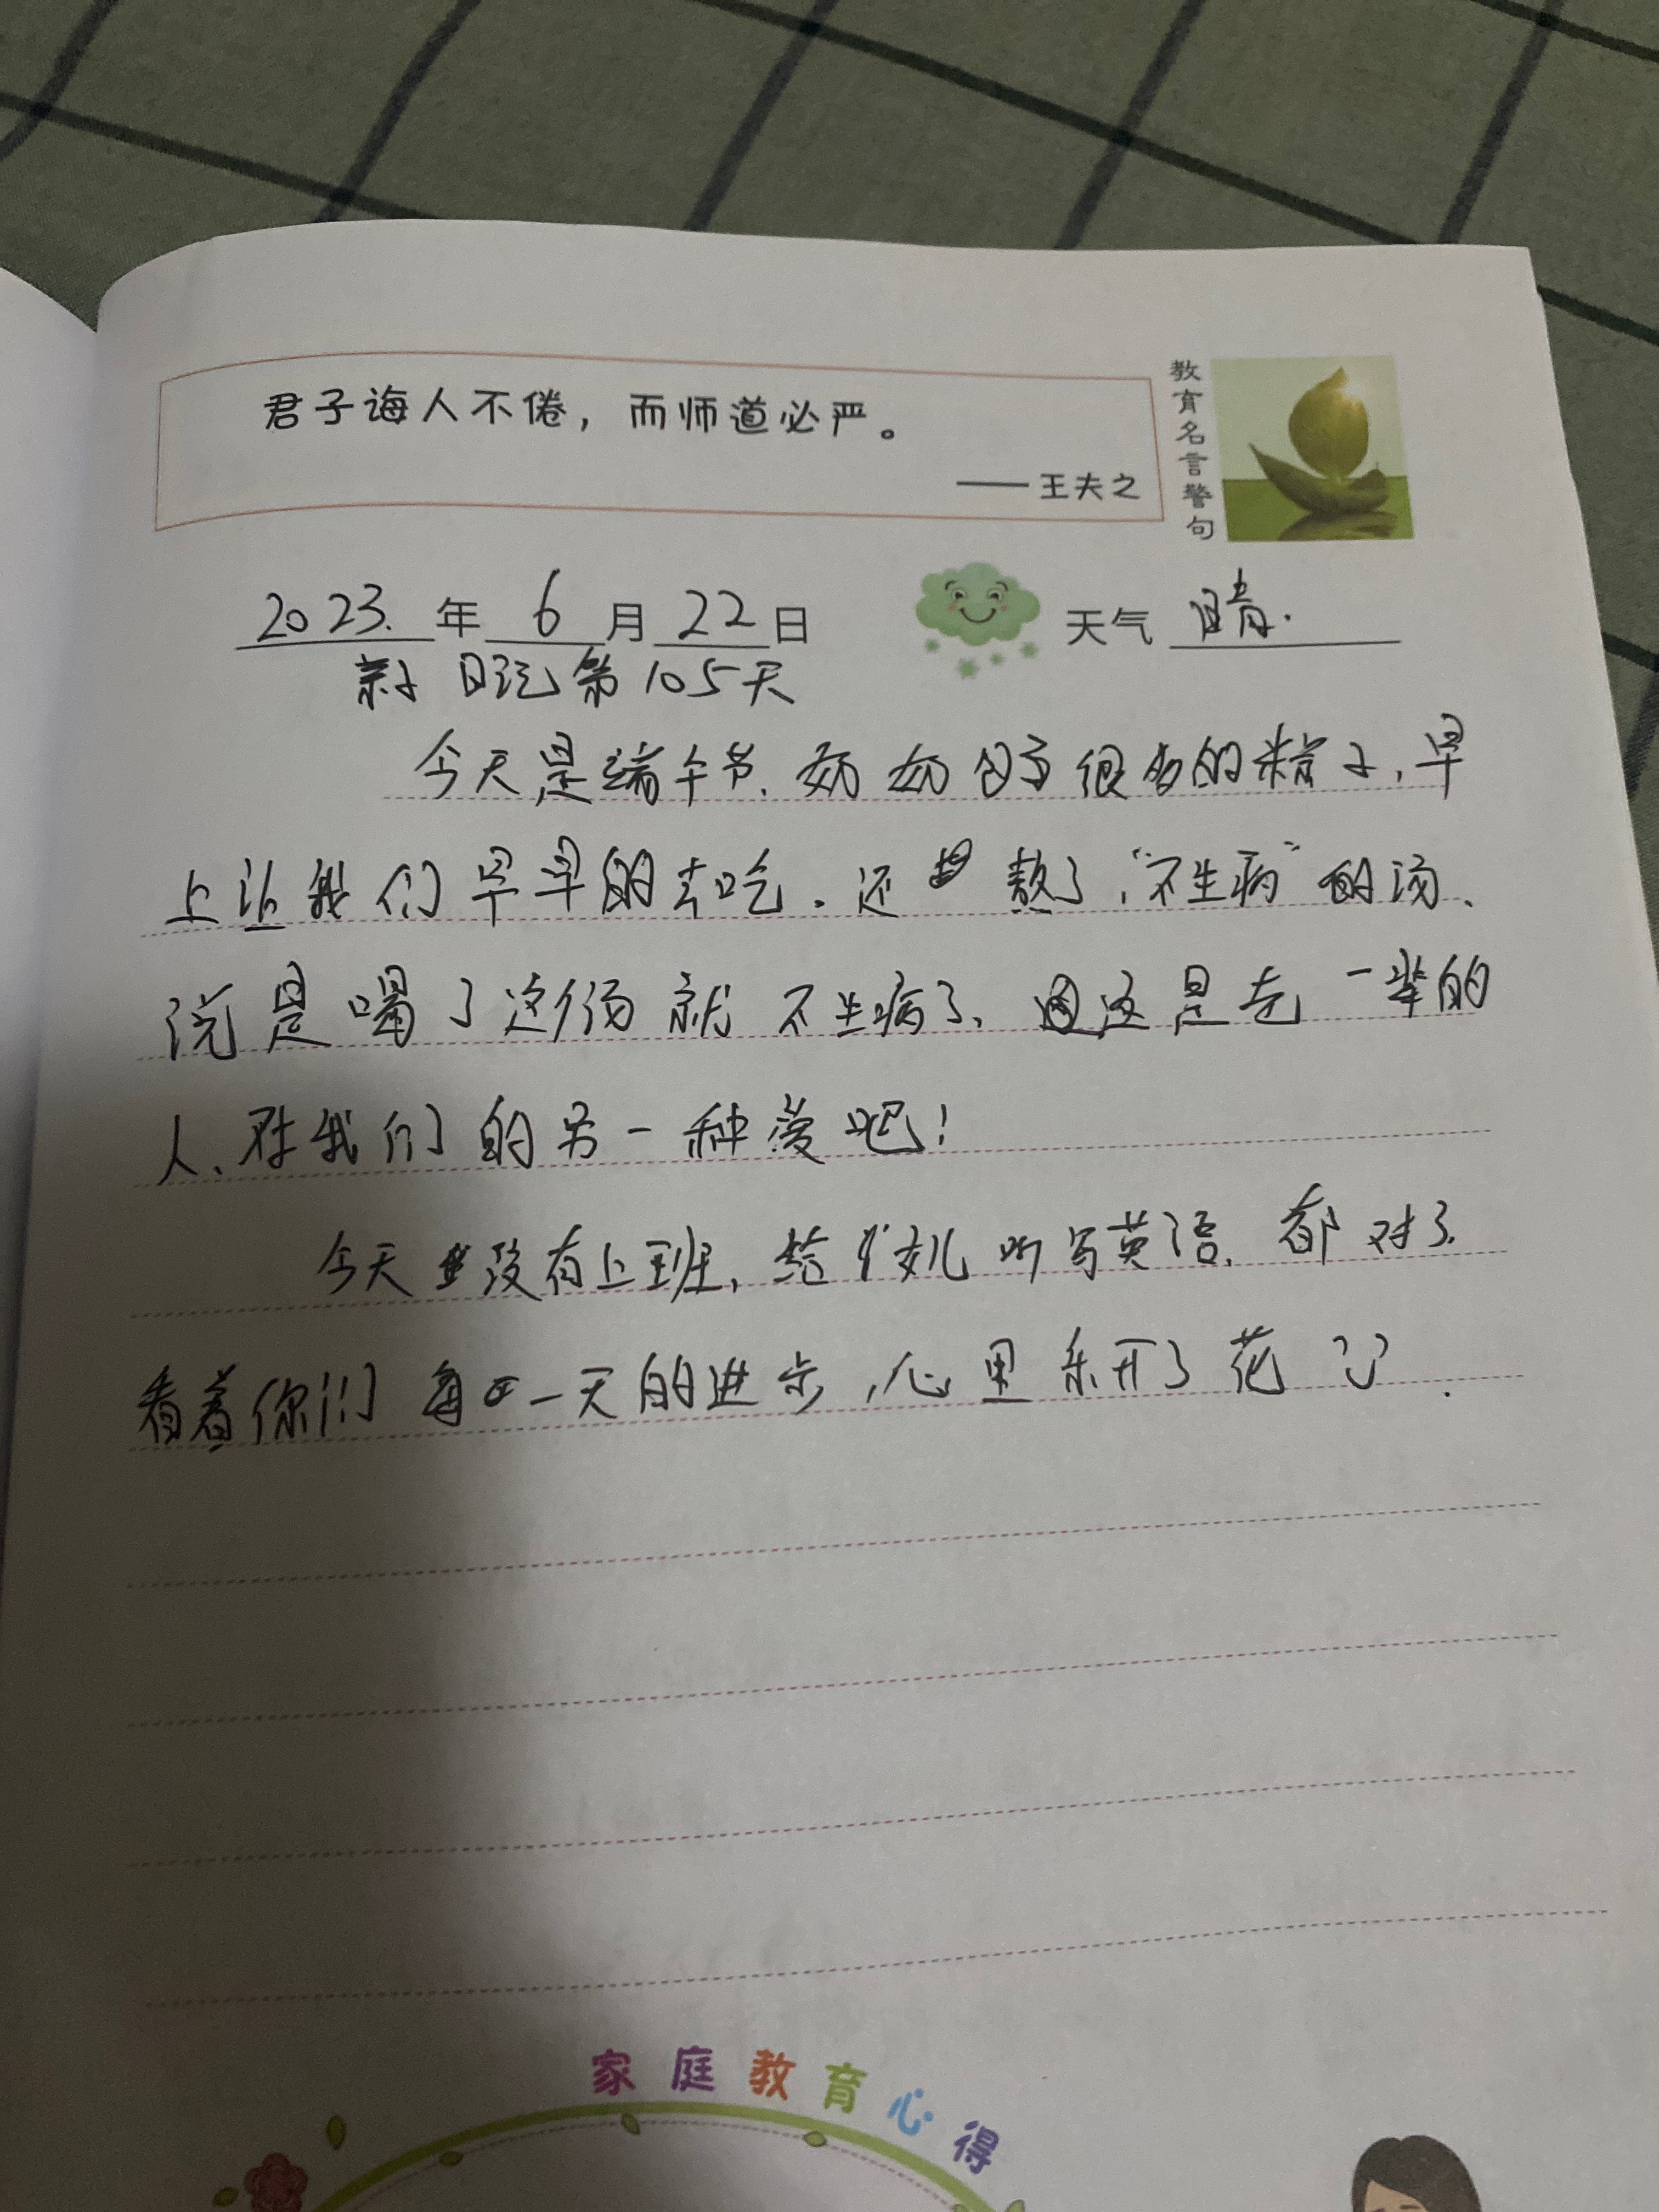 君子诲人不倦，而师道必严。
——王夫之
教育名言警句
2023.年6月22日
天气 晴.
亲子日记第105天
今天是端午节.奶奶包了很多的粽子,早
上让我们早早的去吃.还熬了,“不生病”的汤、
说是喝了这个汤就不生病了,这是老一辈的
人、对我们的另一种爱吧!
今天没有上班,给女儿听写英语,都对了.
看着你们每一天的进步,心里乐开了花.
家庭教育心得